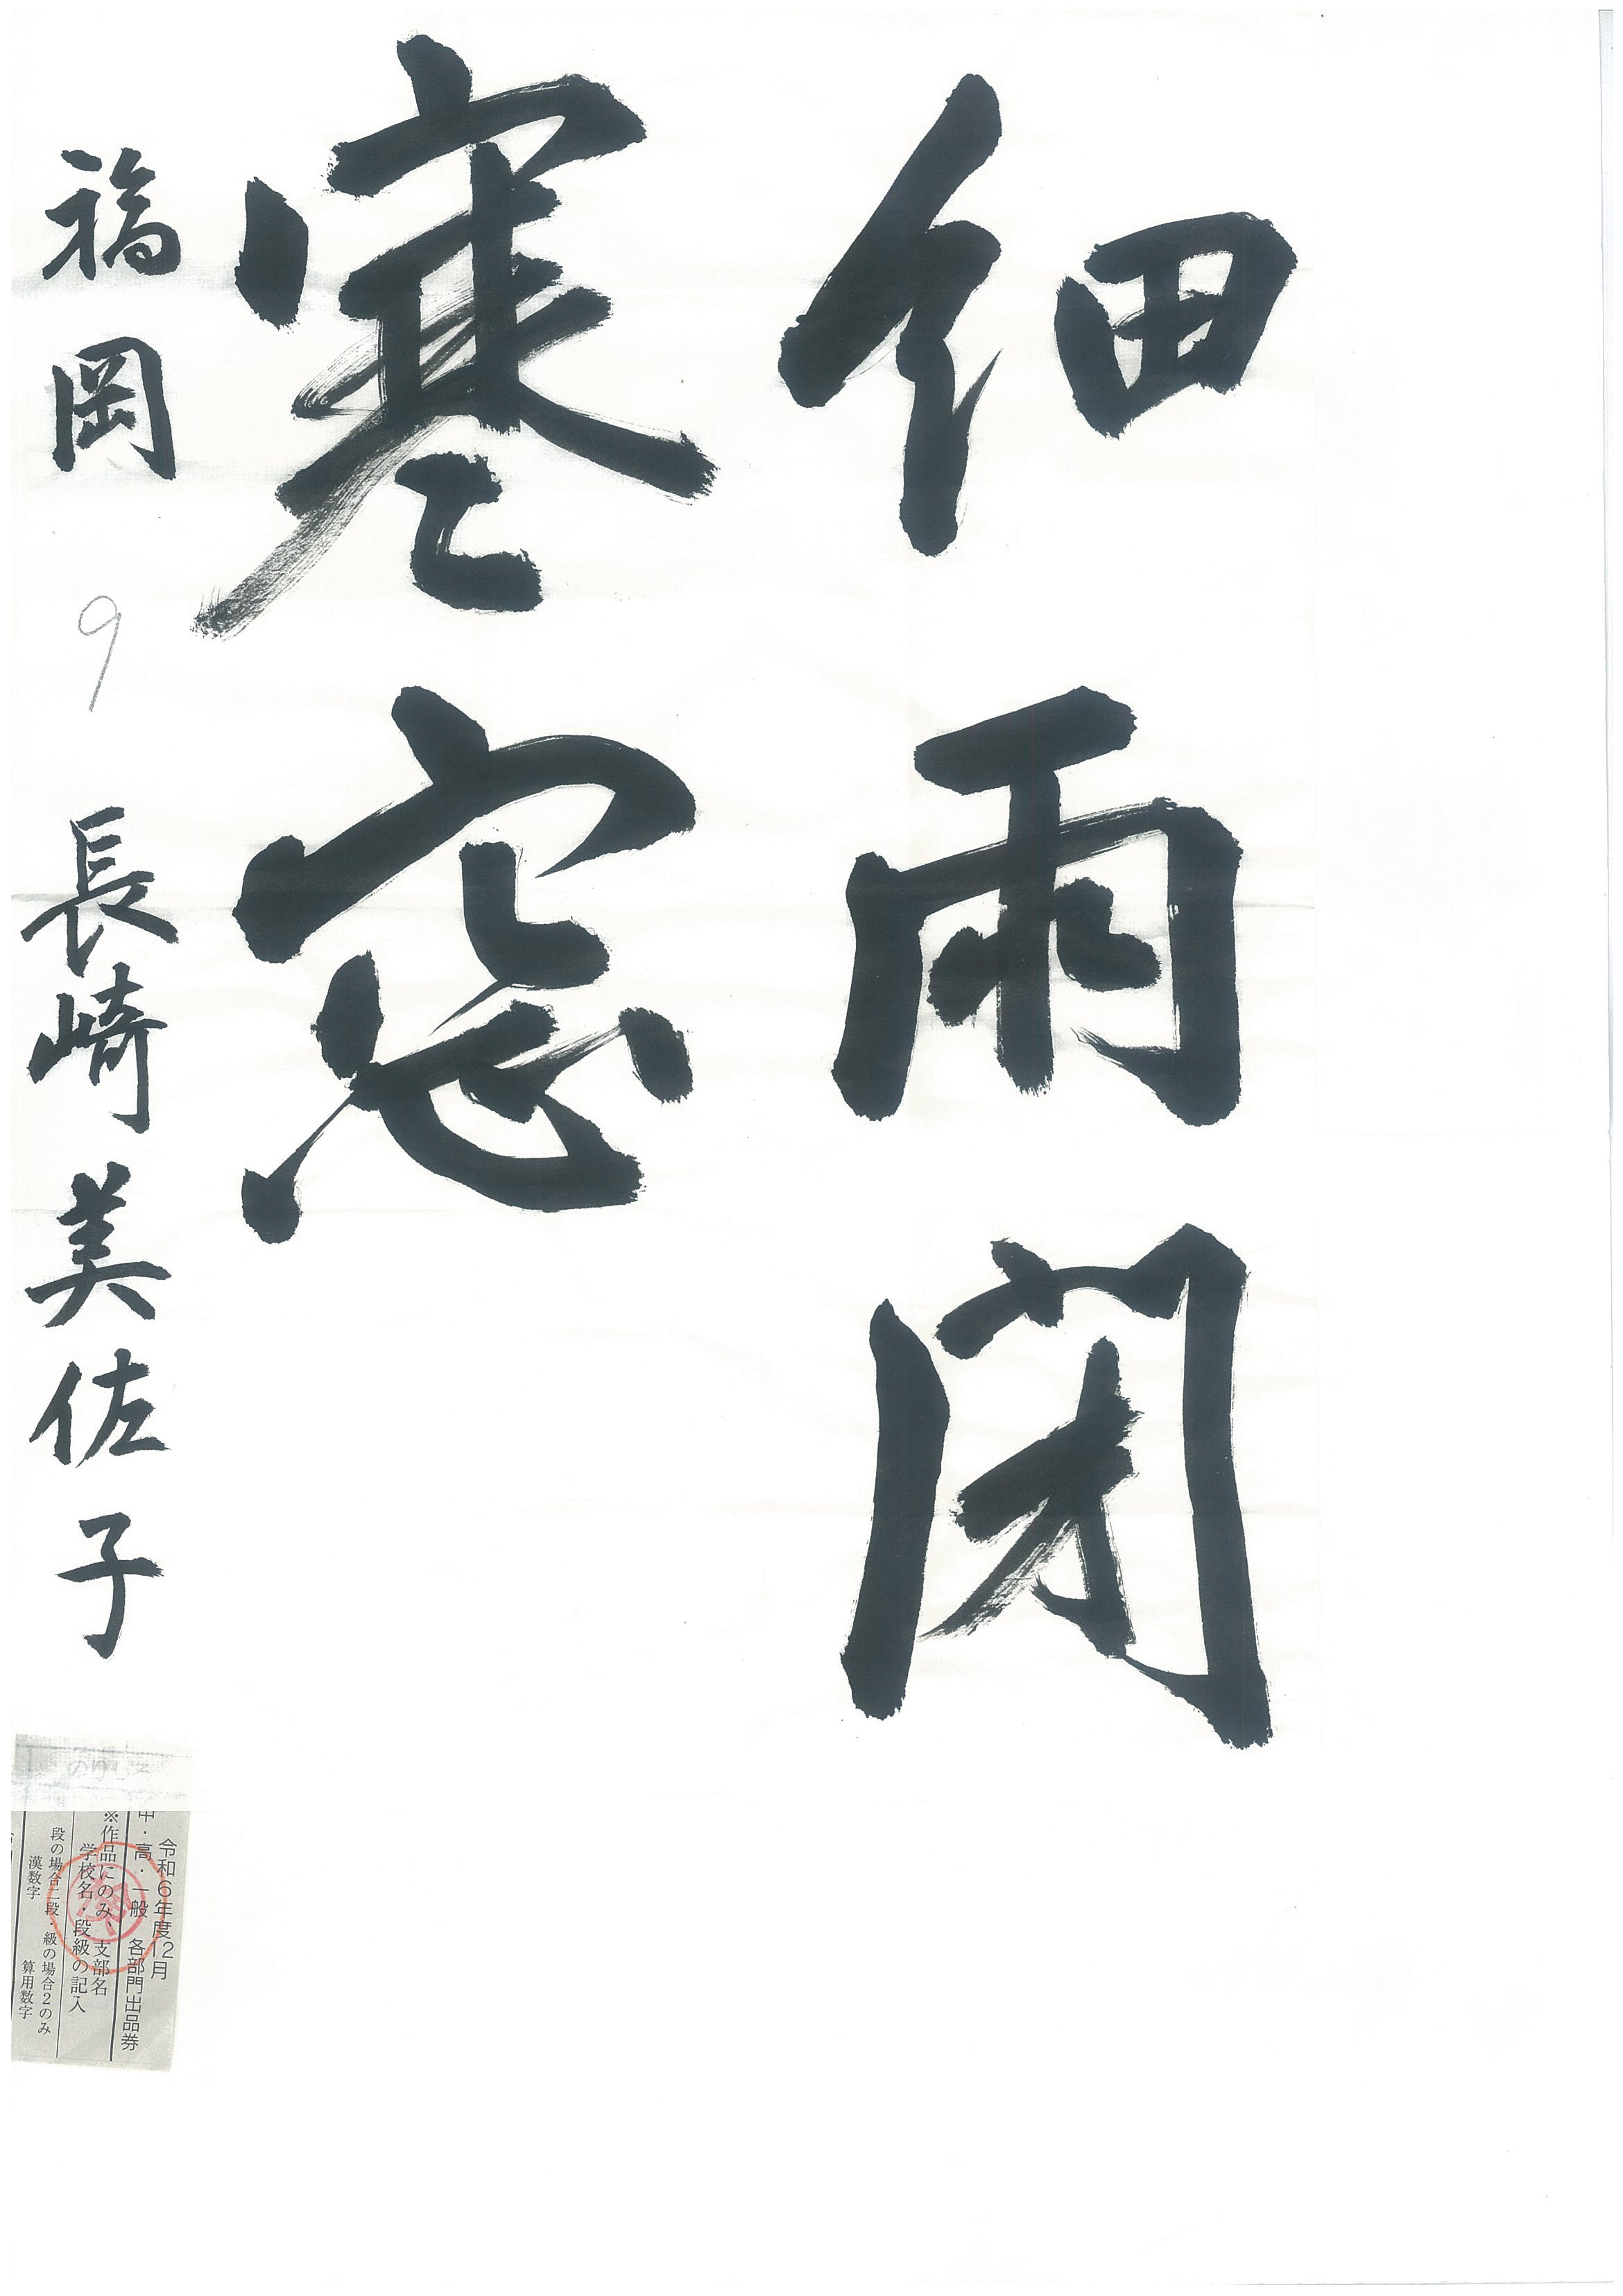 細雨閉
寒窓
福岡 9 長崎美佐子
令和6年度12月
中・高・一般 各部門出品券
※作品にのみ、支部名
学校名・段級の記入
段の場合二段・級の場合2のみ
漢数字 算用数字
のりしろ